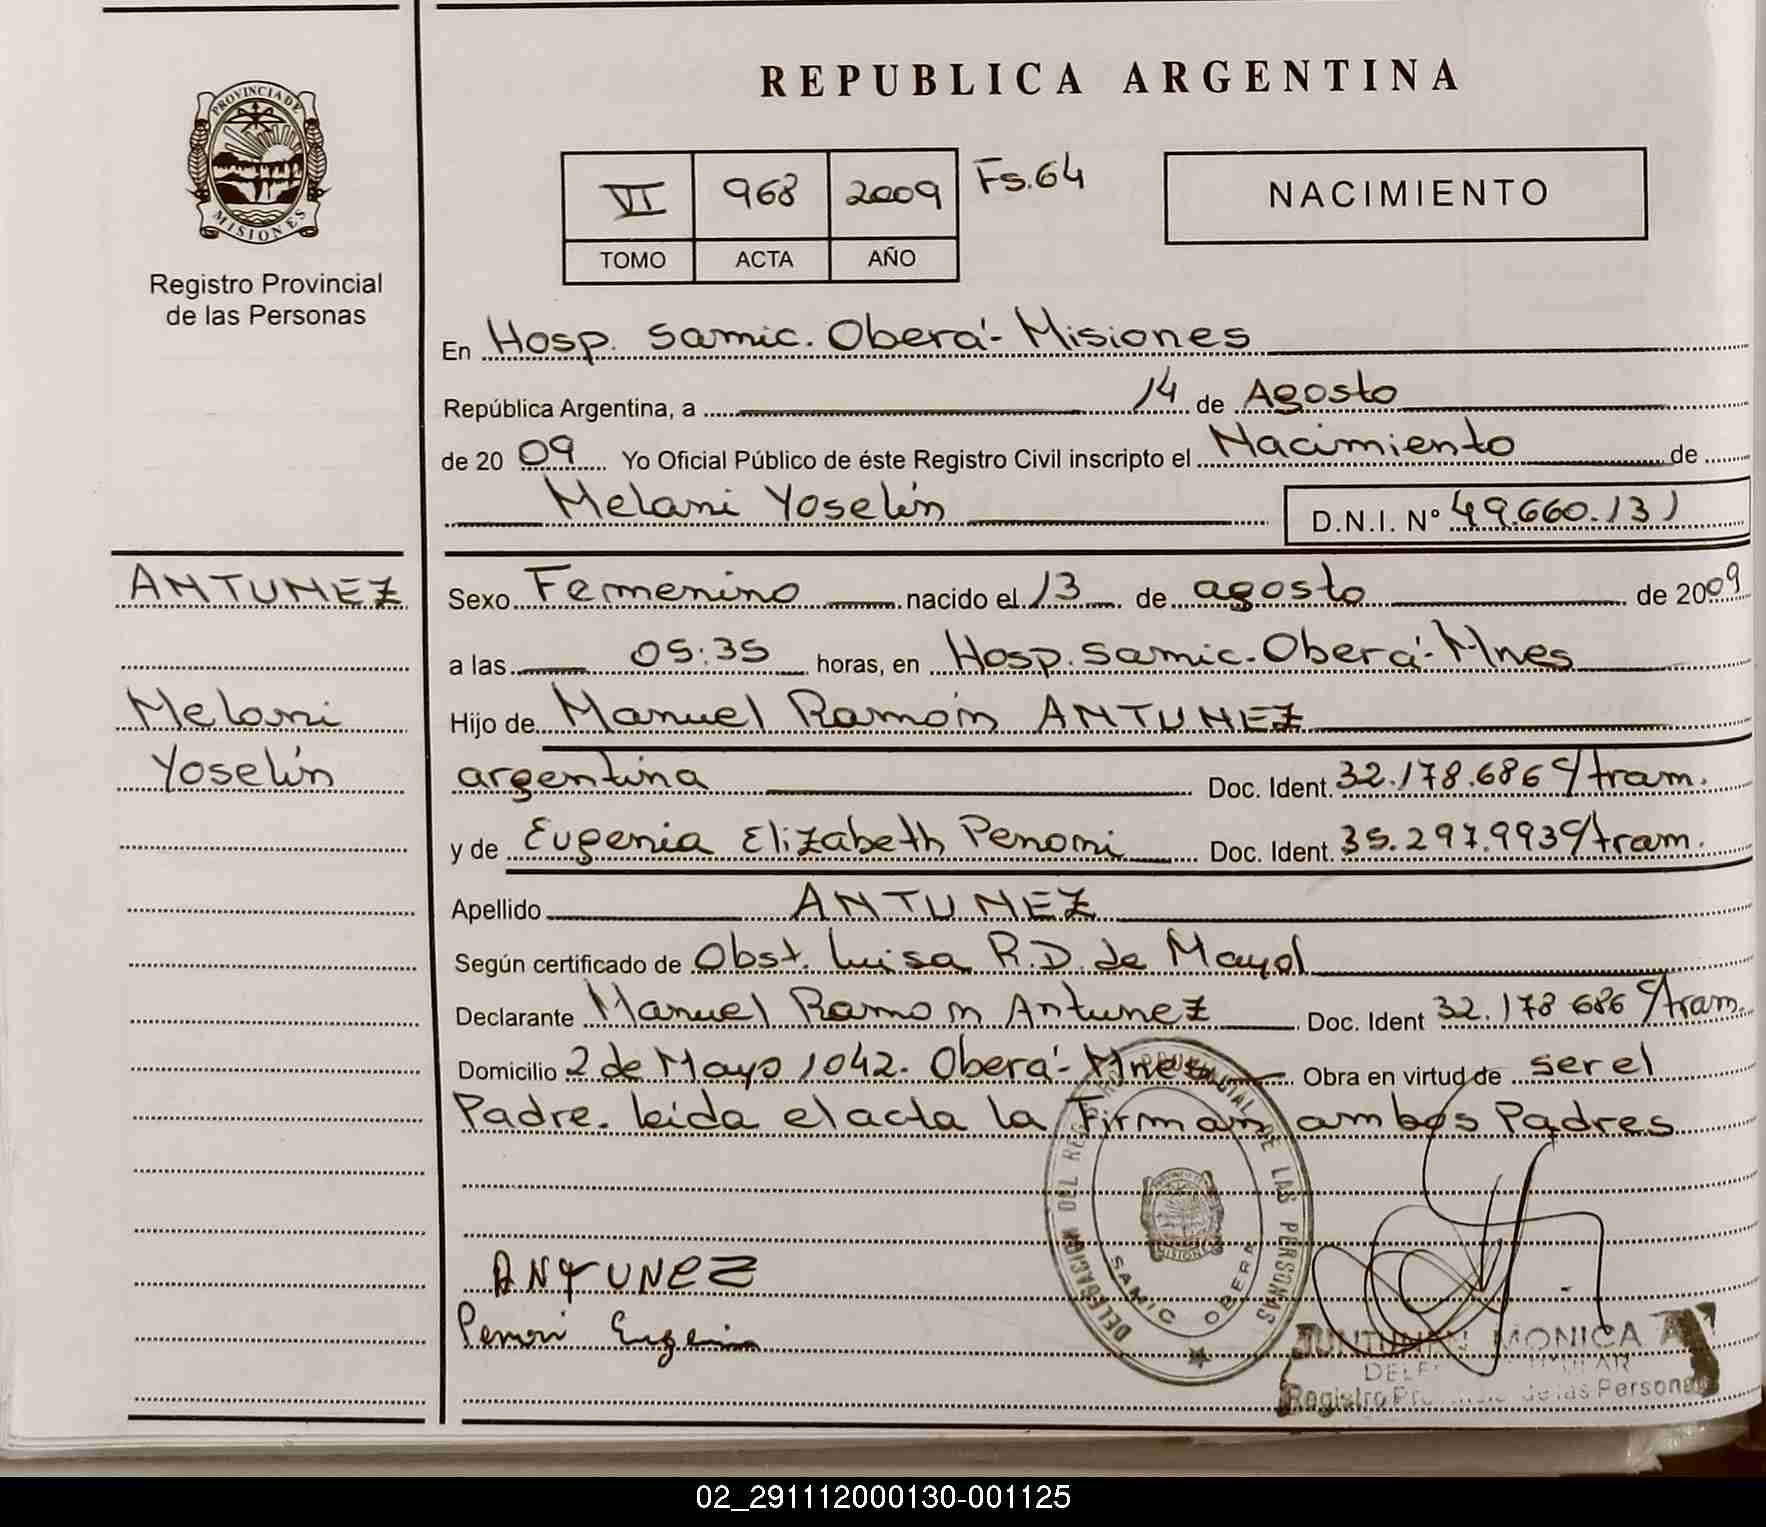 REPUBLICA ARGENTINA
PROVINCIA DE MISIONES
Registro Provincial
de las Personas
VI 968 2009 Fs.64
TOMO ACTA AÑO
NACIMIENTO
En Hosp. Samic. Oberá - Misiones
República Argentina, a 14 de Agosto
de 2009 Yo Oficial Público de éste Registro Civil inscripto el Nacimiento de
Melani Yoselín D.N.I. Nº 49.660.131
ANTUNEZ
Melani
Yoselín
Sexo Femenino nacido el 13 de agosto de 2009
a las 05:35 horas, en Hosp. Samic. Oberá - Mnes
Hijo de Manuel Ramón ANTUNEZ
argentina Doc. Ident. 32.178.686 C/tram.
y de Eugenia Elizabeth Penoni Doc. Ident. 35.297.993 C/tram.
Apellido ANTUNEZ
Según certificado de Obst. Luisa R.D. de Mayol
Declarante Manuel Ramon Antunez Doc. Ident 32.178 686 C/tram.
Domicilio 2 de Mayo 1042. Oberá - Mnes Obra en virtud de ser el
Padre. leida el acta la Firman ambos Padres
DELEGACION DEL REG. PROVINCIAL DE LAS PERSONAS
SAMIC OBERA
MISIONES
ANTUNEZ
Penoni Eugenia
MONICA A
Registro de las Personas
02_291112000130-001125